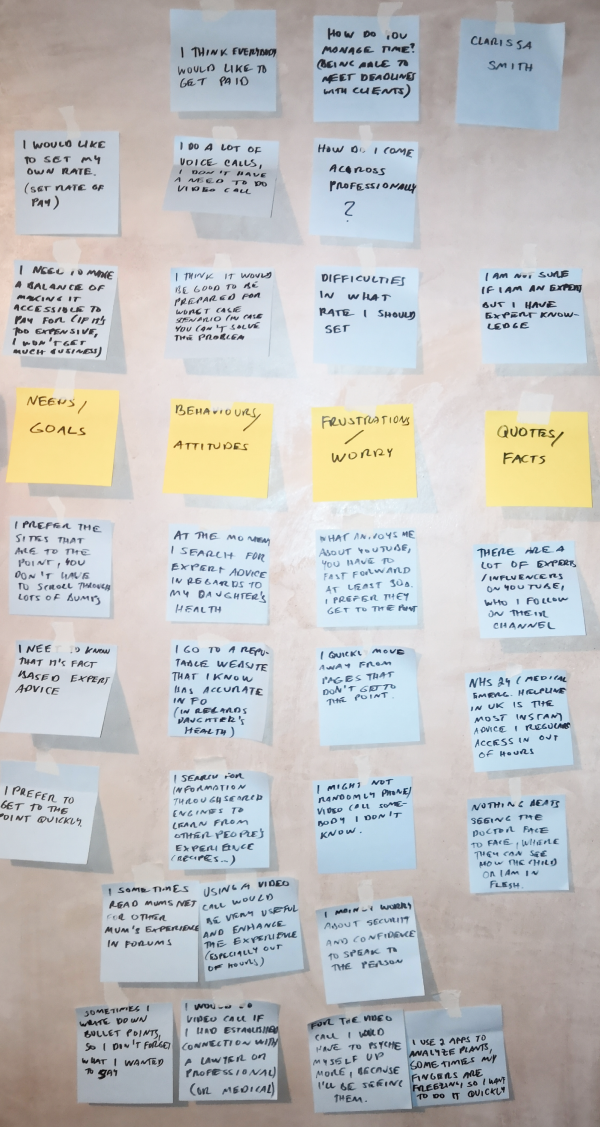 I THINK EVERYBODY
WOULD LIKE TO
GET PAID
HOW DO YOU
MONAGE TIME?
(BEING ABLE TO
MEET DEADLINES
WITH CLIENTS)
CLARISSA
SMITH
I WOULD LIKE
TO SET MY
OWN RATE.
(SET RATE OF
PAY)
I DO A LOT OF
VOICE CALLS,
I DON'T HAVE
A NEED TO DO
VIDEO CALL
HOW DO I COME
ACAROSS
PROFESSIONALLY
?
I NEED TO MAKE
A BALANCE OF
MAKING IT
ACCESSIBLE TO
PAY FOR (IF IT'S
TOO EXPENSIVE,
I WON'T GET
MUCH BUSINESS)
I THINK IT WOULD
BE GOOD TO BE
PREPARED FOR
WORST CASE
SENARIO (IN CASE
YOU CAN'T SOLVE
THE PROBLEM
DIFFICULTIES
IN WHAT
RATE I SHOULD
SET
I AM NOT SURE
IF I AM AN EXPERT
BUT I HAVE
EXPERT KNOW-
LEDGE
NEEDS/
GOALS
BEHAVIOURS/
ATTITUDES
FRUSTRATIONS
/
WORRY
QUOTES/
FACTS
I PREFER THE
SITES THAT
ARE TO THE
POINT, YOU
DON'T HAVE
TO SCROLL THROUGH
LOTS OF BUMPS
AT THE MOMENT
I SEARCH FOR
EXPERT ADVICE
IN REGARDS TO
MY DAUGHTER'S
HEALTH
WHAT ANNOYS ME
ABOUT YOUTUBE,
YOU HAVE TO
FAST FORWARD
AT LEAST 30s.
I PREFER THEY
GET TO THE POINT
THERE ARE A
LOT OF EXPERTS
/INFLUENCERS
ON YOUTUBE,
WHO I FOLLOW
ON THEIR
CHANNEL
I NEED TO KNOW
THAT IT'S FACT
BASED EXPERT
ADVICE
I GO TO A REPU-
TABLE WEBSITE
THAT I KNOW
HAS ACCURATE
INFO
(IN REGARDS
DAUGHTER'S
HEALTH)
I QUICKLY MOVE
AWAY FROM
PAGES THAT
DON'T GET TO
THE POINT.
NHS 24 (MEDICAL
EMERG. HELPLINE
IN UK IS THE
MOST INSTANT
ADVICE I REGULARLY
ACCESS IN OUT
OF HOURS
I PREFER TO
GET TO THE
POINT QUICKLY.
I SEARCH FOR
INFORMATION
THROUGH SEARCH
ENGINES TO
LEARN FROM
OTHER PEOPLE'S
EXPERIENCE
(RECIPES...)
I MIGHT NOT
RANDOMLY PHONE/
VIDEO CALL SOME-
BODY I DON'T
KNOW.
NOTHING BEATS
SEEING THE
DOCTOR FACE
TO FACE, WHERE
THEY CAN SEE
HOW THE CHILD
OR I AM IN
FLESH.
I SOMETIMES
READ MUMSNET
FOR OTHER
MUM'S EXPERIENCE
IN FORUMS
USING A VIDEO
CALL WOULD
BE VERY USEFUL
AND ENHANCE
THE EXPERIENCE
(ESPECIALLY OUT
OF HOURS)
I MAINLY WORRY
ABOUT SECURITY
AND CONFIDENCE
TO SPEAK TO
THE PERSON
SOMETIMES I
WRITE DOWN
BULLET POINTS,
SO I DON'T FORGET
WHAT I WANTED
TO SAY
I WOULD DO
VIDEO CALL IF
I HAD ESTABLISHED
CONNECTION WITH
A LAWYER OR
PROFESSIONAL)
(OR MEDICAL)
FOR THE VIDEO
CALL I WORD
HAVE TO PSYCHE
MYSELF UP
MORE, BECAUSE
I'LL BE SEEING
THEM.
I USE 2 APPS TO
ANALYZE PLANTS,
SOME TIMES MY
FINGERS ARE
FREEZING, SO I WANT
TO DO IT QUICKLY